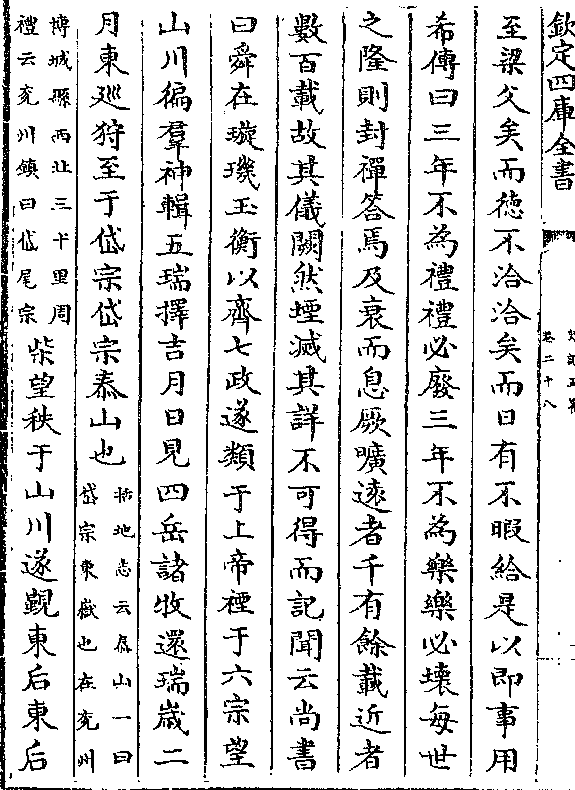 欽定四庫全書
卷二十八
至梁父矣而徳不洽洽矣而日有不暇給是以即事用
希傳曰三年不為禮禮必廢三年不為樂樂必壊每世
之隆則封禪答焉及衰而息厥曠逺者千有餘載近者
數百載故其儀闕然堙滅其詳不可得而記聞云尚書
曰舜在璇璣玉衡以齊七政遂類于上帝禋于六宗望
山川徧羣神輯五瑞擇吉月日見四岳諸牧還瑞嵗二
月東廵狩至于岱宗岱宗泰山也括地志云㤗山一曰
岱宗東嶽也在兖州
博城縣西北三十里周
禮云兖州鎮曰岱尾宗柴望秩于山川遂覲東后東后